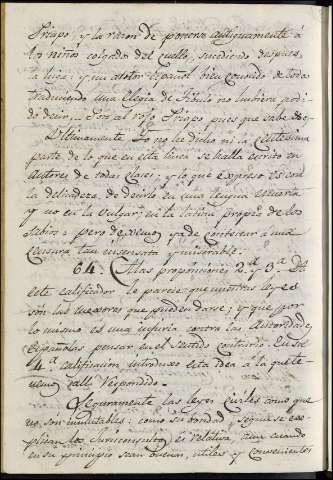 Priapo, y la razon de ponerse antiguamente á
los niños colgado del cuello, sucediendo despues
la higa: y un autor Español bien conocido de todos
traduciendo una Elegia de Tibulo no hubiera podi-
do decir,... Son al rojo Priapo pues que sabe &c.
Ultimamente Yo no he dicho ni la Centesima
parte de lo que en esta linea se halla escrito en
autores de todas clases; y lo que expreso es con
la delicadeza de decirlo en una lengua
y no en la vulgar; en la latina propia de los
Sabios: pero dexemos ya de contestar á una
censura tan insensata y miserable.
64. Las proposiciones 2.ª y 3.ª De
este calificador le parece que nuestras leyes
son las mexores que pueden darse; y que por
lo mismo es una injuria contra las autoridades
Españolas pensar en el sentido contrario. En su
4.ª calificacion introduxo esta idea a la que te-
nemos alli respondido.
Seguramente las leyes civiles como que
no son inmutables: como su bondad, segun se ex-
plican los Jurisconsultos es relativa, aun cuando
en su principio sean buenas, utiles y convenientes